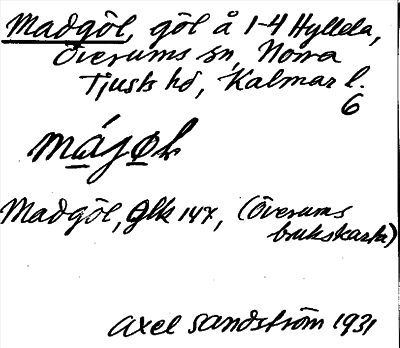 Madgöl, göl å 1-4 Hyllela,
Överums sn, Norra
Tjusts hd, Kalmar l.
6
Madgöl, Glk 147, (Överums
brukskarta)
Axel Sandström 1931